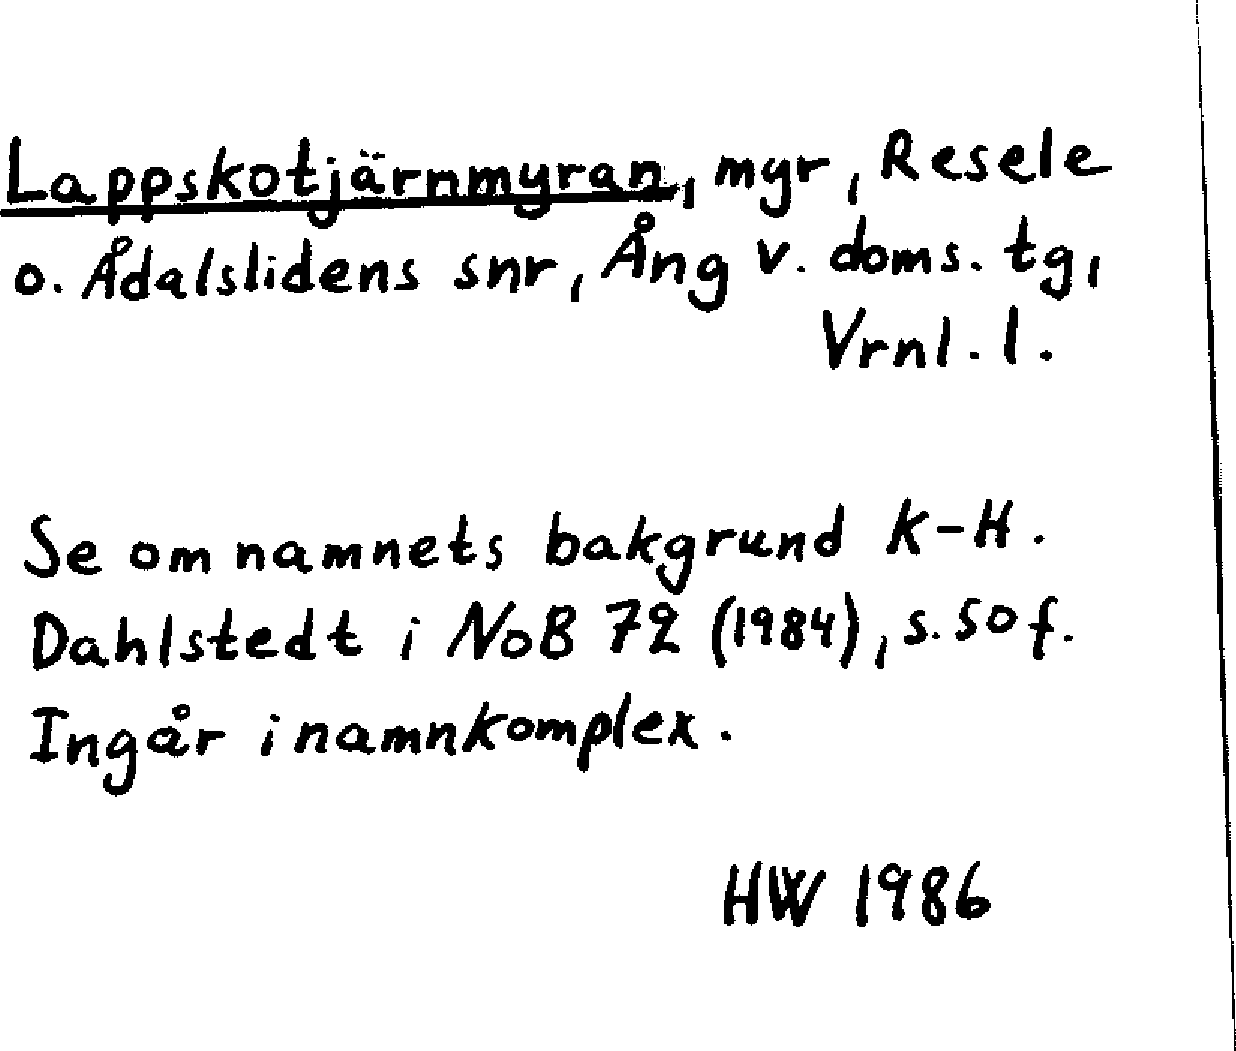 Lappskotjärnmyran, myr, Resele
o. Ådalslidens snr, Ång v. doms. tg,
Vrnl. l.
Se om namnets bakgrund K-H.
Dahlstedt i NoB 72 (1984), s. 50 f.
Ingår i namnkomplex.
HW 1986